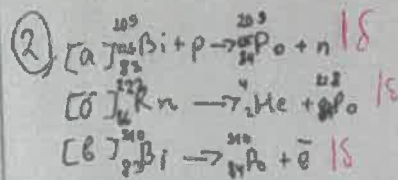 ② [а] ²⁰⁹₈₃Bi + p → ²⁰⁹₈₄Po + n 1б
[б] Rn → ⁴₂He + ²¹⁸₈₄Po 1б
[в] ²¹⁰₈₃Bi → ²¹⁰₈₄Po + ē 1б